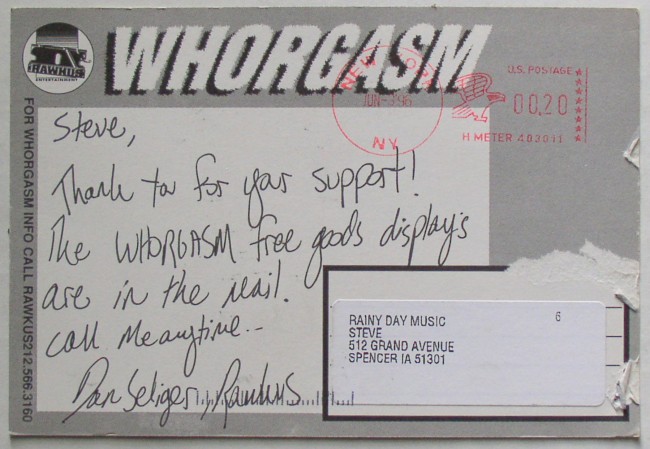 RAWKUS
ENTERTAINMENT
WHORGASM
NEW YORK
JUN-3'96
NY
U.S. POSTAGE
00.20
H METER 403011
FOR WHORGASM INFO CALL RAWKUS 212.566.3160
Steve,
Thank you for your support!
The WHORGASM free goods displays
are in the mail.
call me anytime--
Dan Seliger, Rawkus
RAINY DAY MUSIC 6
STEVE
512 GRAND AVENUE
SPENCER IA 51301